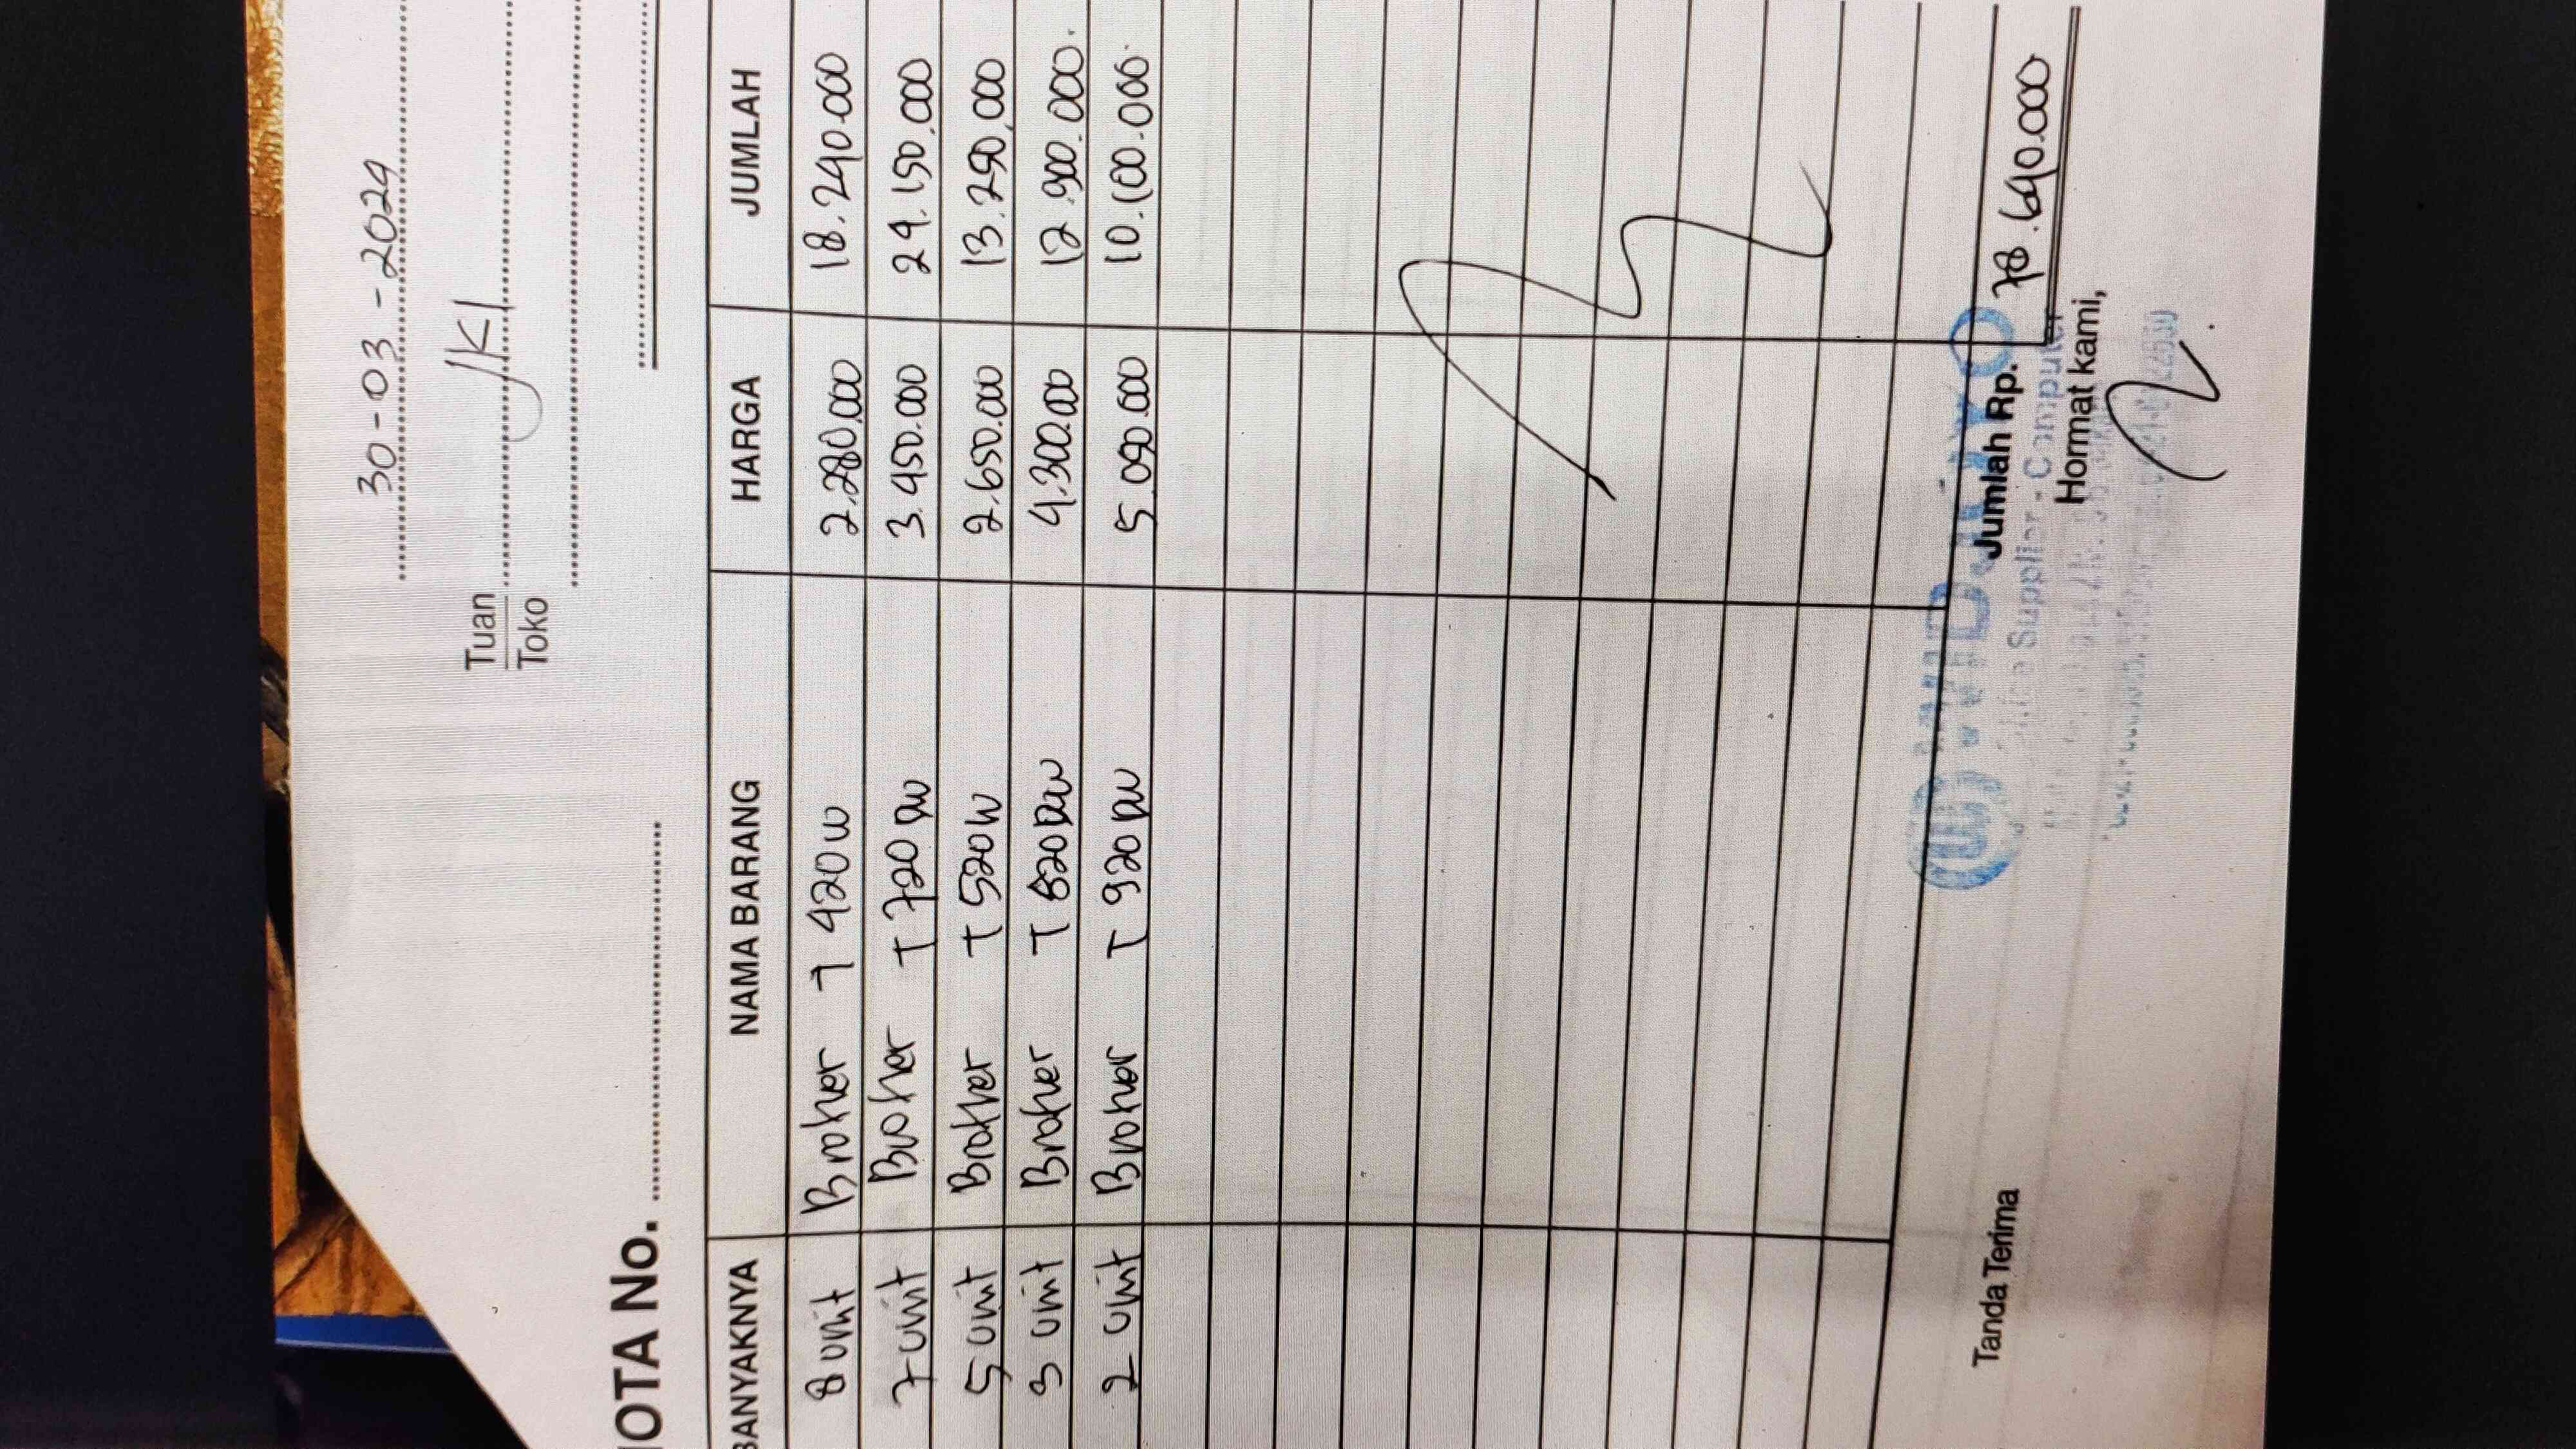 30-03-2024
Tuan JKI
Toko
NOTA No.
BANYAKNYA NAMA BARANG HARGA JUMLAH
8 unit Broher T 420w 2.280.000 18.240.000
7 unit Broher T 720 DW 3.450.000 24.150.000
5 unit Brother T 520w 2.650.000 13.250.000
3 unit Broher T 820DW 4.300.000 12.900.000.
2 unit Broher T 920 DW 5.050.000 10.100.000.
Tanda Terima Jumlah Rp. 78.640.000
Supplier - Computer
Hormat kami,